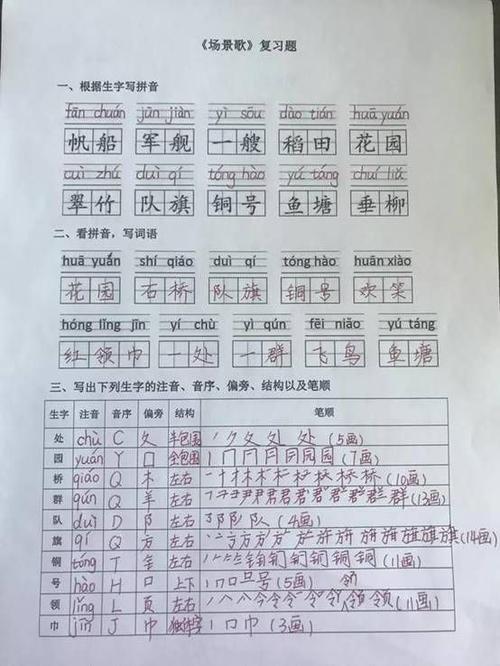 《场景歌》复习题
一、根据生字写拼音
fān chuán jūn jiàn yì sōu dào tián huā yuán
帆船 军舰 一艘 稻田 花园
cuì zhú duì qí tóng hào yú táng chuí liǔ
翠竹 队旗 铜号 鱼塘 垂柳
二、看拼音，写词语
huā yuán shí qiáo duì qí tóng hào huān xiào
花园 石桥 队旗 铜号 欢笑
hóng lǐng jīn yí chù yì qún fēi niǎo yú táng
红领巾 一处 一群 飞鸟 鱼塘
三、写出下列生字的注音、音序、偏旁、结构以及笔顺
生字 注音 音序 偏旁 结构 笔顺
处 chù C 夂 半包围 处 (5画)
园 yuán Y 囗 全包围 园 (7画)
桥 qiáo Q 木 左右 桥 (10画)
群 qún Q 羊 左右 群 (13画)
队 duì D 阝 左右 队 (4画)
旗 qí Q 方 左右 旗 (14画)
铜 tóng T 钅 左右 铜 (11画)
号 hào H 口 上下 号 (5画)
领 lǐng L 页 左右 领 (11画)
巾 jīn J 巾 独体字 巾 (3画)